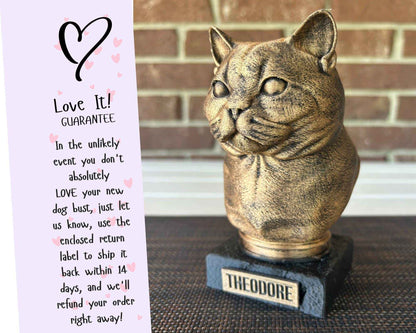 Love It!
GUARANTEE
In the unlikely
event you don't
absolutely
LOVE your new
dog bust, just let
us know, use the
enclosed return
label to ship it
back within 14
days, and we'll
refund your order
right away!
THEODORE